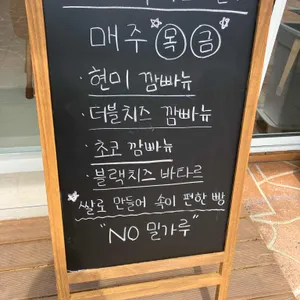 매주 목 금
· 현미 깜빠뉴
· 더블치즈 깜빠뉴
· 초코 깜빠뉴
· 블랙치즈 바타르
쌀로 만들어 속이 편한 빵
"NO 밀가루"